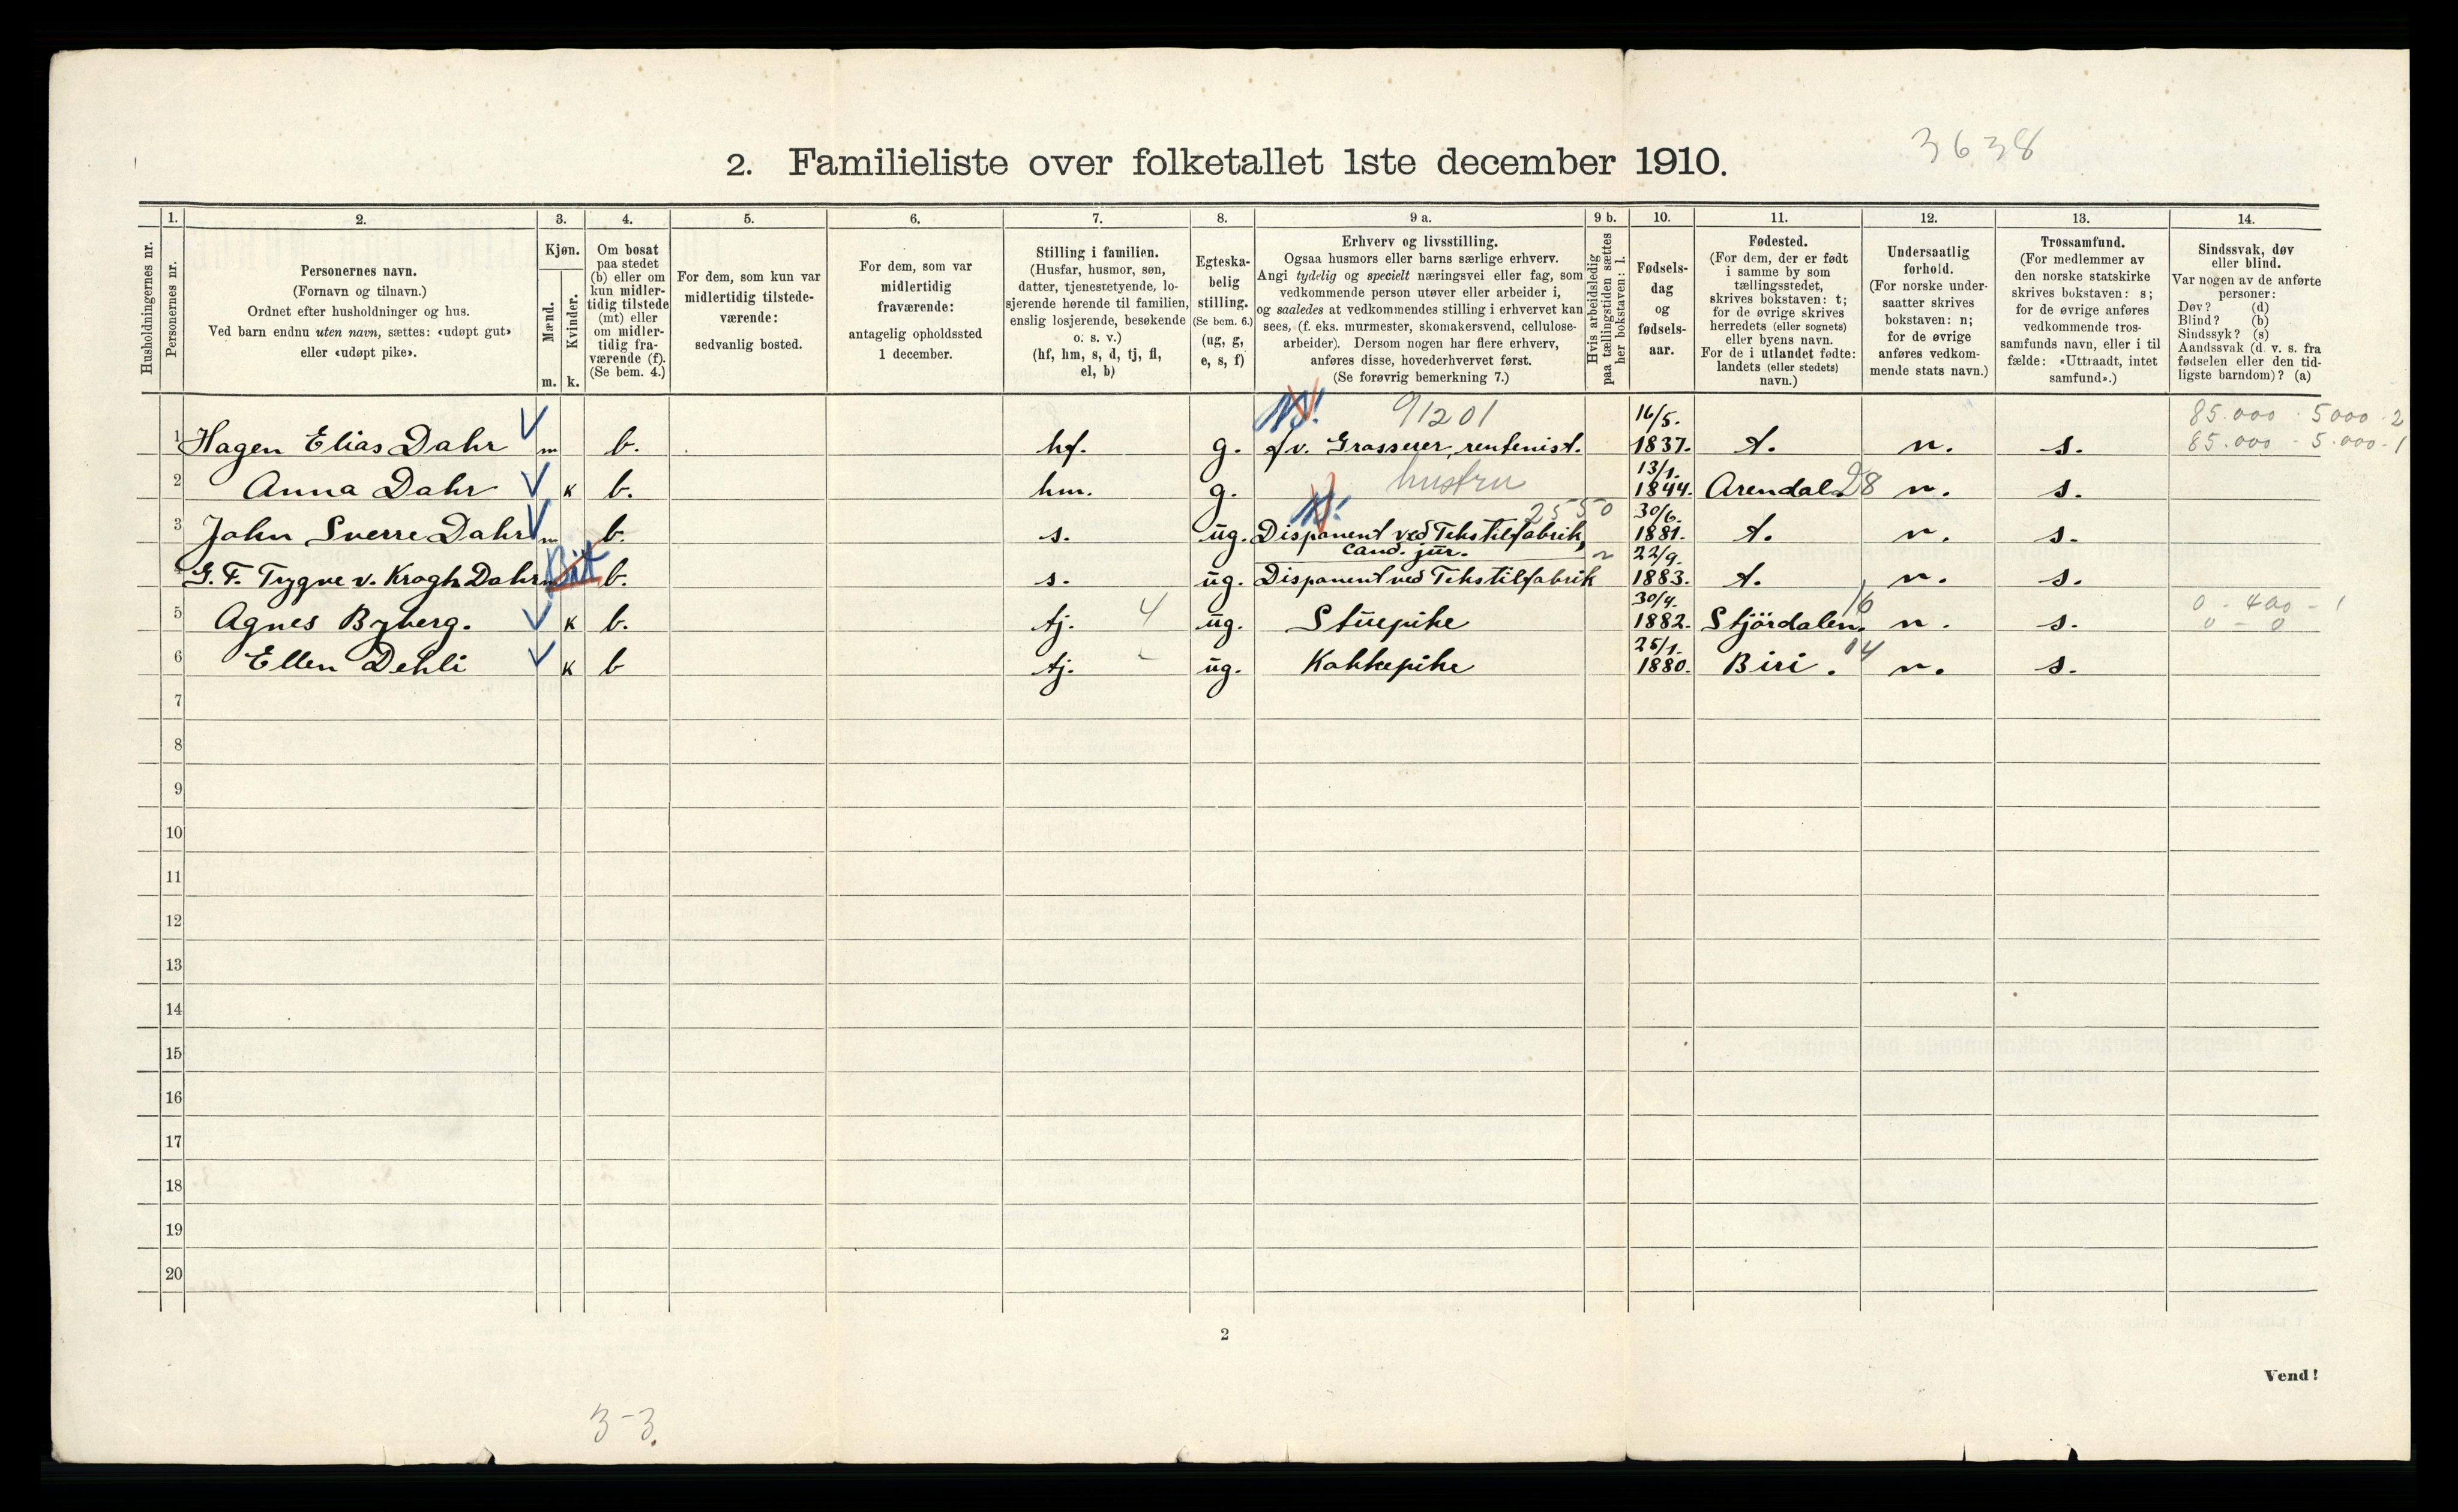 3638
2. Familieliste over folketallet 1ste december 1910.
Husholdningernes nr.
1. Personernes nr.
2. Personernes navn.
(Fornavn og tilnavn.)
Ordnet efter husholdninger og hus.
Ved barn endnu uten navn, sættes: «udøpt gut»
eller «udøpt pike».
3. Kjøn.
Mænd. Kvinder.
m. k.
4. Om bosat
paa stedet
(b) eller om
kun midler-
tidig tilstede
(mt) eller
om midler-
tidig fra-
værende (f).
(Se bem. 4.)
5. For dem, som kun var
midlertidig tilstede-
værende:
sedvanlig bosted.
6. For dem, som var
midlertidig
fraværende:
antagelig opholdssted
1 december.
7. Stilling i familien.
(Husfar, husmor, søn,
datter, tjenestetyende, lo-
sjerende hørende til familien,
enslig losjerende, besøkende
o. s. v.)
(hf, hm, s, d, tj, fl,
el, b)
8. Egteska-
belig
stilling.
(Se bem. 6.)
(ug, g,
e, s, f)
9 a. Erhverv og livsstilling.
Ogsaa husmors eller barns særlige erhverv.
Angi tydelig og specielt næringsvei eller fag, som
vedkommende person utøver eller arbeider i,
og saaledes at vedkommendes stilling i erhvervet kan
sees, (f. eks. murmester, skomakersvend, cellulose-
arbeider). Dersom nogen har flere erhverv,
anføres disse, hovederhvervet først.
(Se forøvrig bemerkning 7.)
9 b. Hvis arbeidsledig
paa tællingstiden sættes
her bokstaven: l.
10. Fødsels-
dag
og
fødsels-
aar.
11. Fødested.
(For dem, der er født
i samme by som
tællingsstedet,
skrives bokstaven: t;
for de øvrige skrives
herredets (eller sognets)
eller byens navn.
For de i utlandet fødte:
landets (eller stedets)
navn.)
12. Undersaatlig
forhold.
(For norske under-
saatter skrives
bokstaven: n;
for de øvrige
anføres vedkom-
mende stats navn.)
13. Trossamfund.
(For medlemmer av
den norske statskirke
skrives bokstaven: s;
for de øvrige anføres
vedkommende tros-
samfunds navn, eller i til
fælde: «Uttraadt, intet
samfund».)
14. Sindssvak, døv
eller blind.
Var nogen av de anførte
personer:
Døv? (d)
Blind? (b)
Sindssyk? (s)
Aandssvak (d. v. s. fra
fødselen eller den tid-
ligste barndom)? (a)
91201 16/5. 85.000 - 5000 - 2
1 Hagen Elias Dahr m b. hf. g. fv. Grosserer, rentenist. 1837. t. n. s. 85.000 - 5.000 - 1
hustru 13/1.
2 Anna Dahr k b. hm. g. 1844. Arendal 28 n. s.
2550 30/6.
3 John Sverre Dahr m b. s. ug. Disponent ved Tekstilfabrik, 1881. t. n. s.
cand. jur. 22/9.
4 G. F. Trygve v. Krogh Dahr m b. s. ug. Disponent ved Tekstilfabrik 1883. t. n. s.
30/4. 16 0 - 400 - 1
5 Agnes Byberg. k b. tj. 4 ug. Stuepike 1882. Stjördalen. n. s. 0 - 0
25/1. 04
6 Ellen Dehli k b tj. ug. Kokkepike 1880. Biri. n. s.
7
8
9
10
11
12
13
14
15
16
17
18
19
20
2
Vend!
3-3.